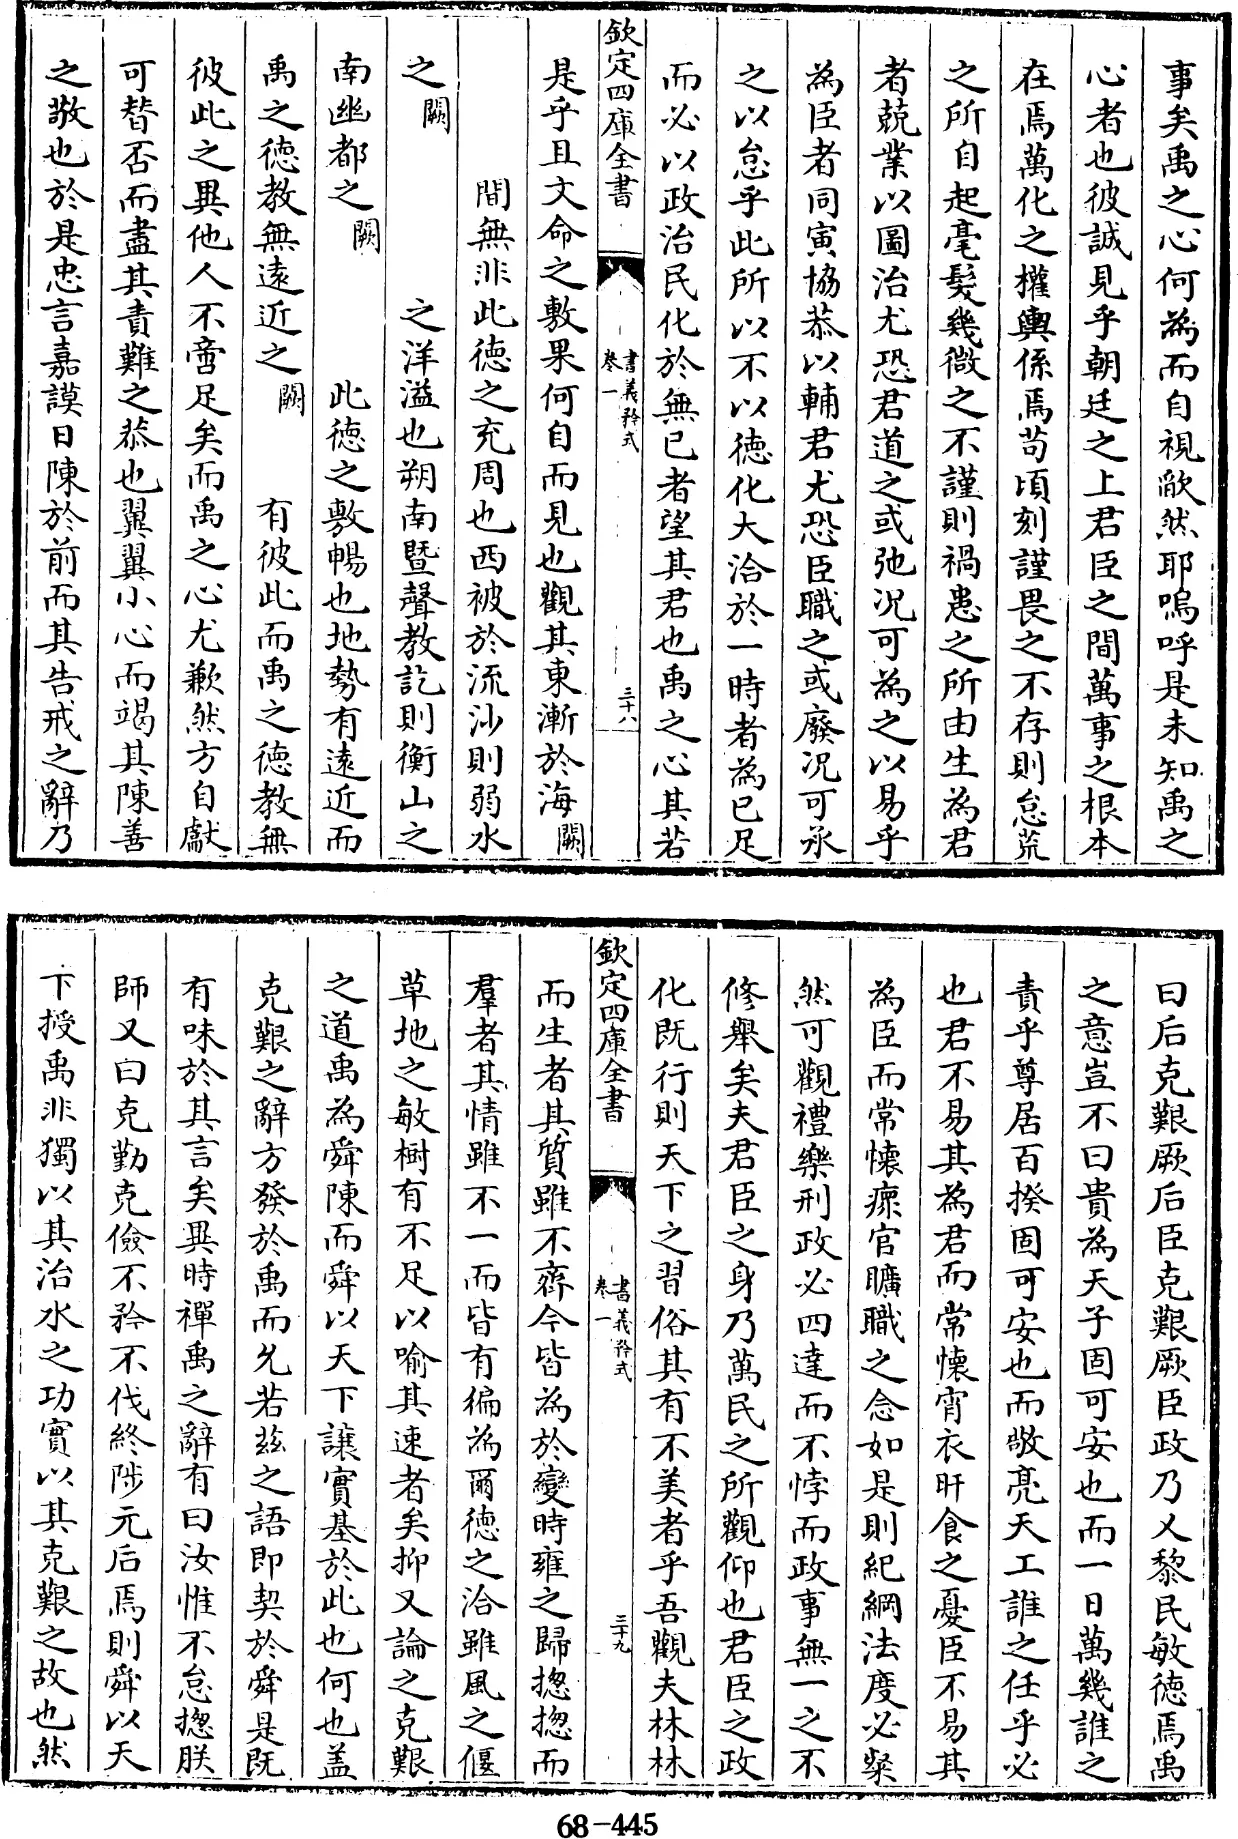 事矣禹之心何為而自視欿然耶嗚呼是未知禹之
心者也彼誠見乎朝廷之上君臣之間萬事之根本
在焉萬化之權輿係焉苟頃刻謹畏之不存則怠荒
之所自起毫髮幾微之不謹則禍患之所由生為君
者兢業以圖治尤恐君道之或弛况可為之以易乎
為臣者同寅協恭以輔君尤恐臣職之或廢况可承
之以怠乎此所以不以徳化大洽於一時者為已足
而必以政治民化於無已者望其君也禹之心其若
欽定四庫全書
書義矜式
卷一
三十八
是乎且文命之敷果何自而見也觀其東漸於海闕
間無非此徳之充周也西被於流沙則弱水
之闕 之洋溢也朔南暨聲教訖則衡山之
南幽都之闕 此徳之敷暢也地勢有遠近而
禹之徳教無遠近之闕 有彼此而禹之徳教無
彼此之異他人不啻足矣而禹之心尤歉然方自獻
可替否而盡其責難之恭也翼翼小心而竭其陳善
之敬也於是忠言嘉謨日陳於前而其告戒之辭乃
曰后克艱厥后臣克艱厥臣政乃乂黎民敏徳焉禹
之意豈不曰貴為天子固可安也而一日萬幾誰之
責乎尊居百揆固可安也而敬亮天工誰之任乎必
也君不易其為君而常懐宵衣旰食之憂臣不易其
為臣而常懐瘝官曠職之念如是則紀綱法度必粲
然可觀禮樂刑政必四達而不悖而政事無一之不
修舉矣夫君臣之身乃萬民之所觀仰也君臣之政
化既行則天下之習俗其有不美者乎吾觀夫林林
欽定四庫全書
書義矜式
卷一
三十九
而生者其質雖不齊今皆為於變時雍之歸揔揔而
羣者其情雖不一而皆有徧為爾徳之洽雖風之偃
草地之敏樹有不足以喻其速者矣抑又論之克艱
之道禹為舜陳而舜以天下讓實基於此也何也盖
克艱之辭方發於禹而允若兹之語即契於舜是既
有味於其言矣異時禪禹之辭有曰汝惟不怠揔朕
師又曰克勤克儉不矜不伐終陟元后焉則舜以天
下授禹非獨以其治水之功實以其克艱之故也然
68-445